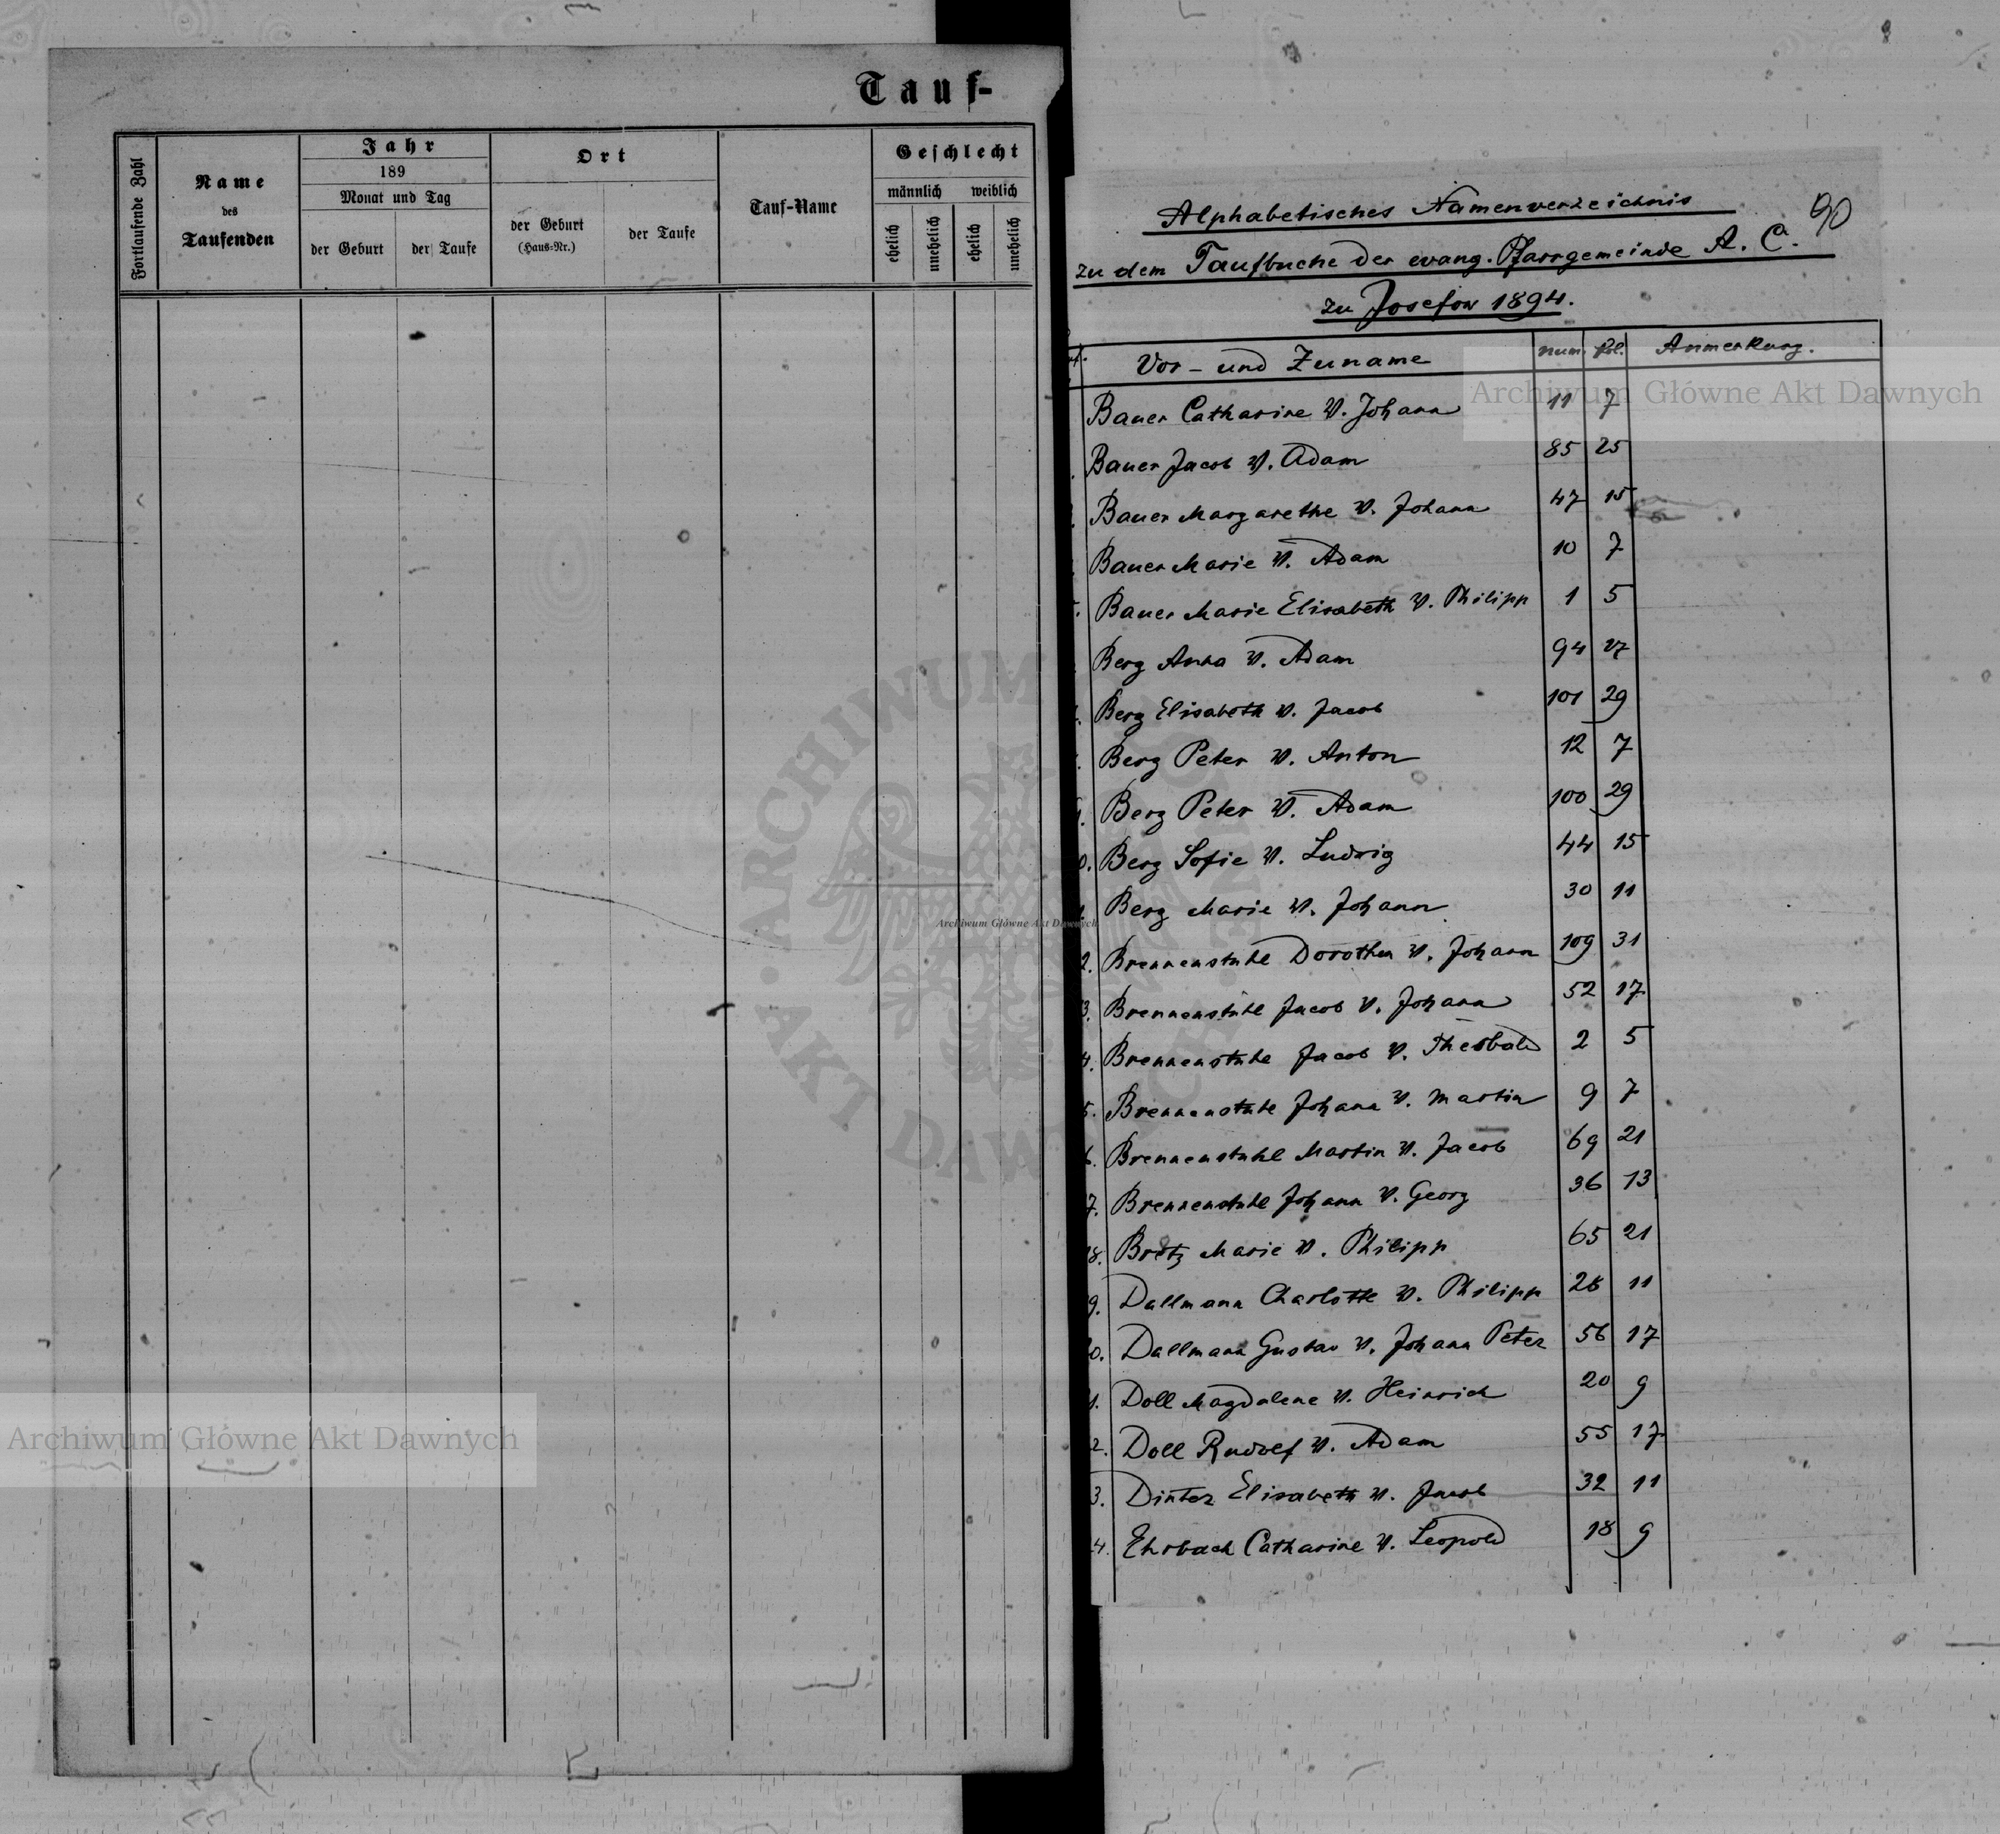 Tauf-
Fortlaufende Zahl
Name
des
Taufenden
Jahr
189
Monat und Tag
der Geburt
der Taufe
Ort
der Geburt
(Haus-Nr.)
der Taufe
Tauf-Name
Geschlecht
männlich weiblich
ehelich
unehelich
ehelich
unehelich
90
Alphabetisches Namenverzeichnis
zu dem Taufbuche der evang. Pfarrgemeinde A. C.
zu Josefow 1894.
Vor- und Zuname Num. Fol. Anmerkung.
Bauer Catharine v. Johann 11 7
Bauer Jacob v. Adam 85 25
Bauer Margarethe v. Johann 47 15
Bauer Marie v. Adam 10 7
Bauer Marie Elisabeth v. Philipp 1 5
Berg Anna v. Adam 94 27
Berg Elisabeth v. Jacob 101 29
Berg Peter v. Anton 12 7
Berg Peter v. Adam 100 29
0. Berg Sofie v. Ludwig 44 15
Berg Marie v. Johann 30 11
2. Brennenstuhl Dorothea v. Johann 109 31
3. Brennenstuhl Jacob v. Johann 52 17
4. Brennenstuhl Jacob v. Theobald 2 5
5. Brennenstuhl Johann v. Martin 9 7
6. Brennenstuhl Martin v. Jacob 69 21
7. Brennenstuhl Johann v. Georg 36 13
18. Bretz Marie v. Philipp 65 21
9. Dallmann Charlotte v. Philipp 28 11
0. Dallmann Gustav v. Johann Peter 56 17
1. Doll Magdalene v. Heinrich 20 9
2. Doll Rudolf v. Adam 55 17
3. Dinter Elisabeth v. Jacob 32 11
4. Ehrbach Catharine v. Leopold 18 9
Archiwum Główne Akt Dawnych
ARCHIWUM
AKT DAWNYCH
Archiwum Główne Akt Dawnych
Archiwum Główne Akt Dawnych